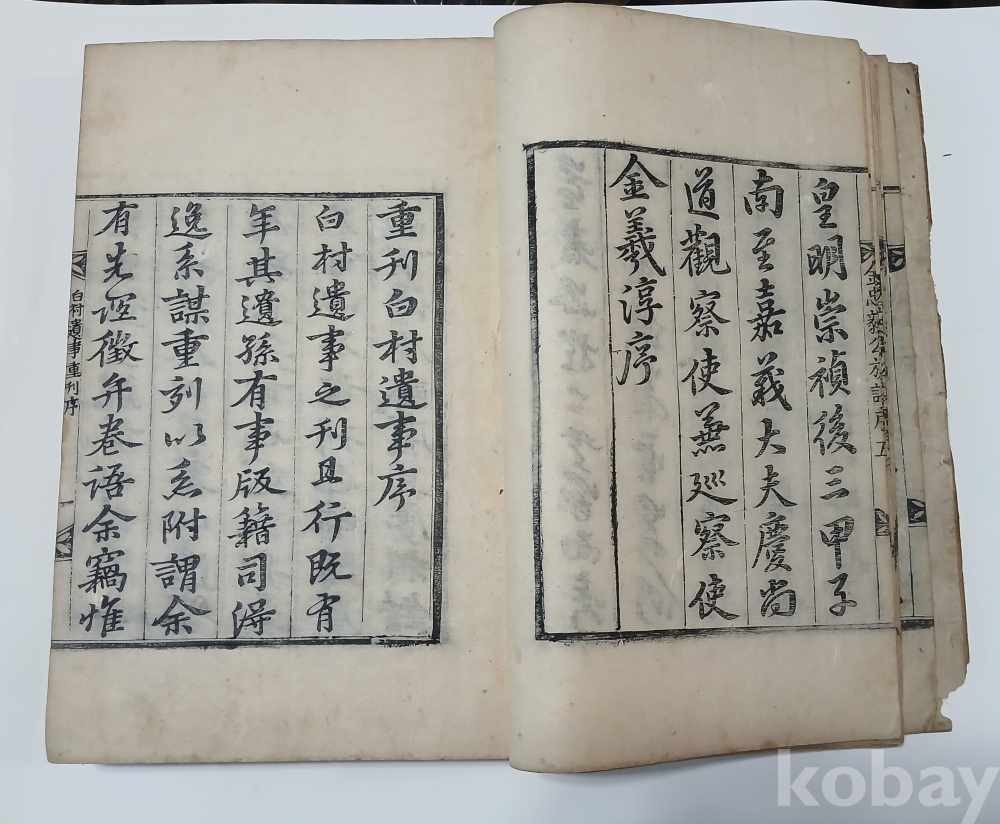 皇明崇禎後三甲子
南至嘉義大夫慶尚
道觀察使兼巡察使
金羲淳序
重刊白村遺事序
白村遺事之刊且行既有
年其遺孫有事版籍司得
逸系謀重列以系附謂余
有先誣徵弁卷語余竊惟
白村遺事重刊序
kobay